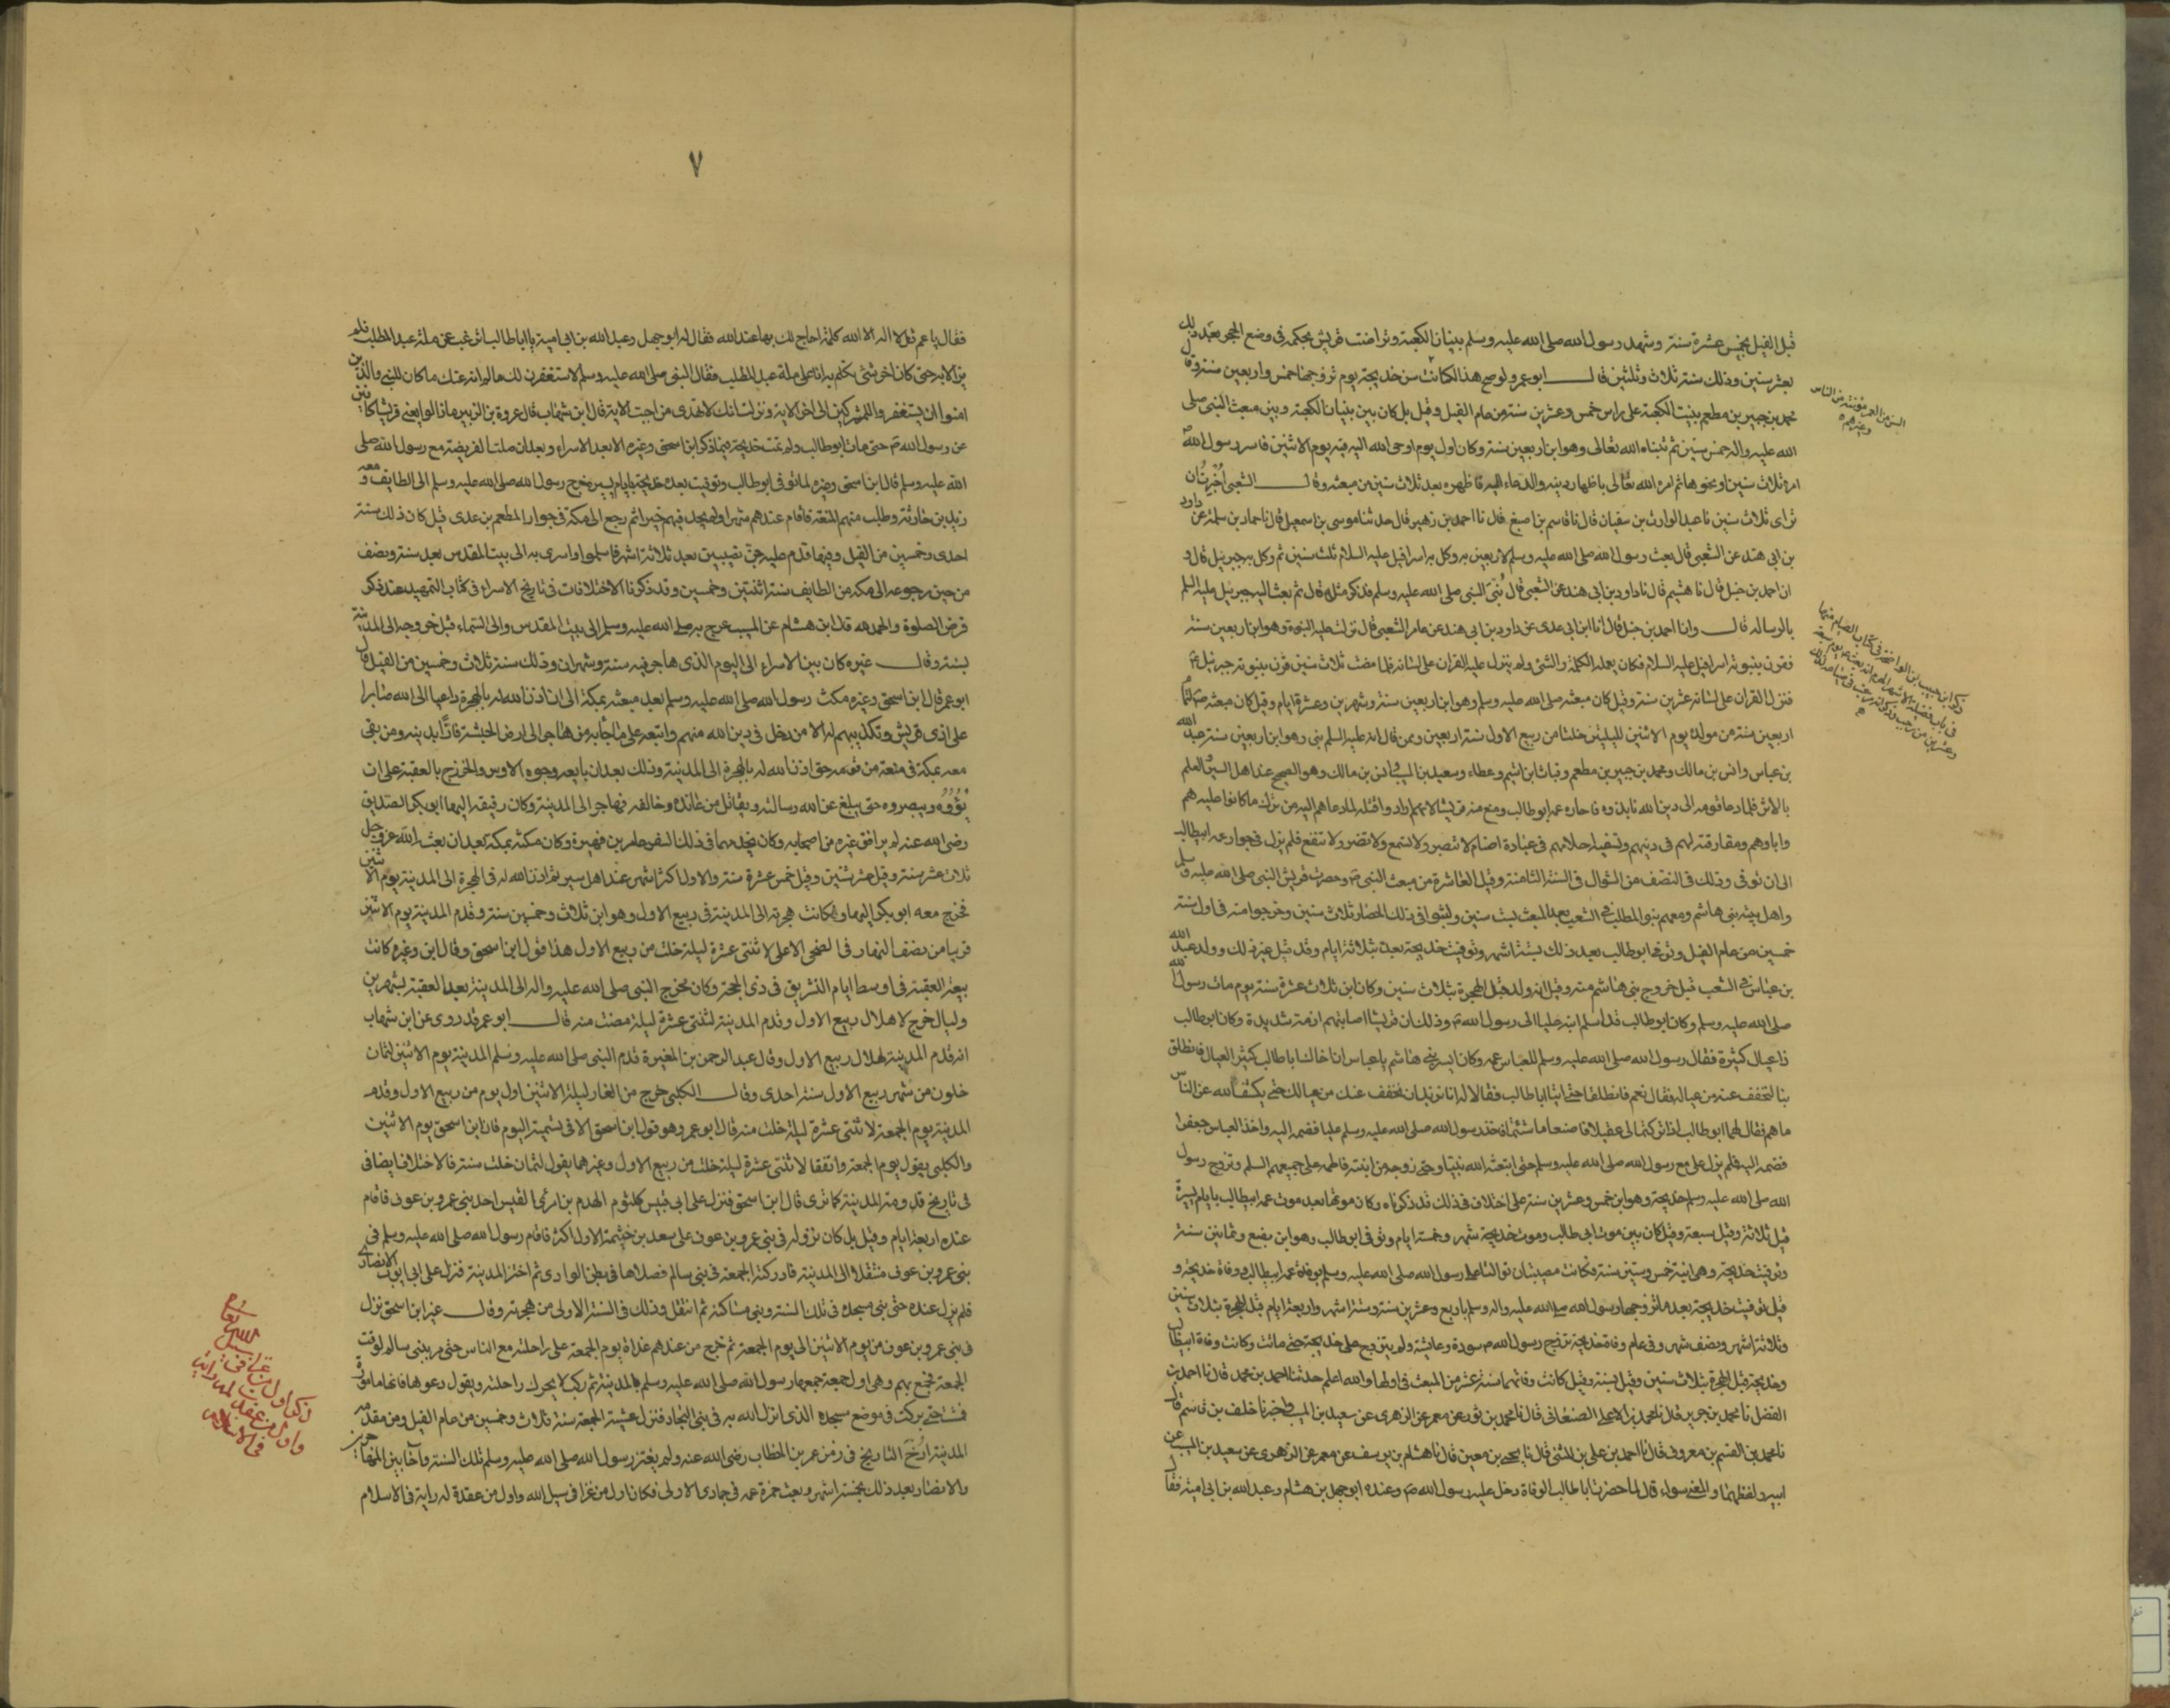 قبل الفيل بخمس عشرة سنة وشهد رسول الله صلى الله عليه وسلم بنيان الكعبة وتراضت قريش بحكمه فى وضع الحجر بعد ذلك
بعشر سنين وذلك سنة ثلاث وثلثين قال ابو عمر ولو صح هذا لكانت سن خديجة يوم تزوجها خمس واربعين سنة وقال
محمد بن جبير بن مطعم بنيت الكعبة على راس خمس وعشرين سنة من عام الفيل وقيل بل كان بين بنيان الكعبة وبين مبعث النبى صلى
الله عليه واله خمس سنين ثم نبأه الله تعالى وهو ابن اربعين سنة وكان اول يوم اوحى الله اليه فيه يوم الاثنين فاسر رسول الله
امره ثلاث سنين او نحوها ثم امره الله تعالى باظهار دينه والدعاء اليه فاظهره بعد ثلاث سنين من مبعثه وقال الشعبى اخبرت ان
تراى ثلاث سنين نا عبد الوارث بن سفيان قال نا قاسم بن اصبغ قال نا احمد بن زهير قال حدثنا موسى بن اسمعيل قال نا حماد بن سلمة عن داود
بن ابى هند عن الشعبى قال بعث رسول الله صلى الله عليه وسلم لاربعين ووكل به اسرافيل عليه السلام ثلث سنين ثم وكل به جبريل قال و
نا احمد بن حنبل قال نا هشيم قال نا داود بن ابى هند عن الشعبى قال نبى النبى صلى الله عليه وسلم فذكر مثله قال ثم بعث اليه جبريل عليه السلم
بالرساله قال وانا احمد بن حنبل قال نا ابن ابى عدى عن داود بن ابى هند عن عامر الشعبى قال نزلت عليه النبوة وهو ابن اربعين سنة
فقرن بنبوته اسرافيل عليه السلام فكان يعلمه الكلمة والشئ ولم ينزل عليه القران على لسانه فلما مضت ثلاث سنين قرن بنبوته جبرئيل
فنزل القران على لسانه عشرين سنة وقيل كان مبعثه صلى الله عليه وسلم وهو ابن اربعين سنة وشهرين وعشرة ايام وقيل كان مبعثه
اربعين سنة من مولده يوم الاثنين لليلتين خلتا من ربيع الاول سنة اربعين وممن قال انه عليه السلم نبى وهو ابن اربعين سنة عبد الله
بن عباس وانس بن مالك ومحمد بن جبير بن مطعم وقباث ابن اشيم وعطاء وسعيد بن المسيب وانس بن مالك وهو الصحيح عند اهل السير والعلم
بالاثر فلما دعا قومه الى دين الله نابذوه فاجاره عمه ابو طالب ومنع منه قريشا لانهم ارادوا قتله لما دعاهم اليه من ترك ما كانوا عليه هم
واباوهم ومفارقته لهم فى دينهم وتسفيه احلامهم فى عبادة اصنام لا تبصر ولا تسمع ولا تضر ولا تنفع فلم يزل فى جوار عمه ابيطالب
الى ان توفى وذلك فى النصف من الشوال فى السنة الثامنة وقيل العاشرة من مبعث النبى وحصرت قريش النبى صلى الله عليه وسلم
واهل بيته بنى هاشم ومعهم بنو المطلب فى الشعب بعد المبعث بست سنين ولبثوا فى ذلك الحصار ثلاث سنين وخرجوا منه فى اول سنة
خمسين من عام الفيل وتوفى ابو طالب بعد ذلك بستة اشهر وتوفيت خديجة بعده بثلاثة ايام وقد قيل غير ذلك وولد عبد الله
بن عباس فى الشعب قبل خروج بنى هاشم منه وقيل انه ولد قبل الهجرة بثلاث سنين وكان ابن ثلاث عشرة سنة يوم مات رسول الله
صلى الله عليه وسلم وكان ابو طالب قد اسلم ابنه عليا الى رسول الله وذلك ان قريشا اصابتهم ازمة شديدة وكان ابو طالب
ذا عيال كثيرة فقال رسول الله صلى الله عليه وسلم للعباس عمه وكان ايسر بنى هاشم يا عباس ان اخاك ابا طالب كثير العيال فانطلق
بنا لنخفف عنه من عياله فقال نعم فانطلقا حتى اتيا ابا طالب فقالا له انا نريد ان نخفف عنك من عيالك حتى يكشف الله عن الناس
ما هم فيه فقال لهما ابو طالب اذا تركتما لى عقيلا فاصنعا ما شئتما فاخذ رسول الله صلى الله عليه وسلم عليا فضمه اليه واخذ العباس جعفرا
فضمه اليه فلم يزل على مع رسول الله صلى الله عليه وسلم حتى ابتعثه الله نبيا وحتى زوجه من ابنته فاطمة على جميعهم السلم وتزوج رسول
الله صلى الله عليه وسلم خديجة وهو ابن خمس وعشرين سنة على اختلاف فى ذلك قد ذكرناه وكان موتها بعد موت عمه ابيطالب بايام يسيرة
قيل ثلاثة وقيل سبعة وقيل كان بين موت ابى طالب وموت خديجة شهر وخمسة ايام وتوفى ابو طالب وهو ابن بضع وثمانين سنة
وتوفيت خديجة وهى ابنة خمس وستين سنة فكانت مصيبتان توالتا على رسول الله صلى الله عليه وسلم بوفاة عمه ابيطالب ووفاة خديجة و
قيل توفيت خديجة بعد ما تزوجها رسول الله صلى الله عليه واله وسلم باربع وعشرين سنة وستة اشهر واربعة ايام قبل الهجرة بثلاث سنين
وثلاثة اشهر ونصف شهر وفى عام وفاة خديجة تزوج رسول الله سودة وعايشة ولم يتزوج على خديجة حتى ماتت وكانت وفاة ابيطالب
وخديجة قبل الهجرة بثلاث سنين وقيل بسنة وقيل كانت وفاتهما سنة عشر من المبعث فى اولها والله اعلم حدثنا احمد بن محمد قال نا احمد بن
الفضل نا محمد بن جرير قال نا محمد بن الاعلى الصنعانى قال نا محمد بن ثور عن معمر عن الزهرى عن سعيد بن المسيب واخبرنا خلف بن قاسم قال
نا محمد بن القسم بن معروف قال نا احمد بن على بن المثنى قال نا يحيى بن معين قال نا هشام بن يوسف عن معمر عن الزهرى عن سعيد بن المسيب عن
ابيه ولفظهما والمعنى سواء قال لما حضرت ابا طالب الوفاة دخل عليه رسول الله وعنده ابو جهل بن هشام وعبد الله بن ابى امية فقال
السن من العمر مؤنثة من الناس
وغيرهم
ذكر ابن حبيب بن الواضحة فى كتاب الصيام منها
٧
فقال يا عم قل لا اله الا الله كلمة احاج لك بها عند الله فقال له ابو جهل وعبد الله بن ابى امية يا ابا طالب اترغب عن ملة عبد المطلب فلم
يزالا به حتى كان اخر شئ تكلم به انا على ملة عبد المطلب فقال النبى صلى الله عليه وسلم لاستغفرن لك ما لم انه عنك ما كان للنبى والذين
امنوا ان يستغفروا للمشركين الى اخر الاية ونزلت انك لا تهدى من احببت الاية قال ابن شهاب قال عروة بن الزبير ما زالوا يعنى قريشا كافين
عن رسول الله حتى مات ابو طالب ولم تمت خديجة فيما ذكر ابن اسحق وغيره الا بعد الاسراء وبعد ان صلت الفريضة مع رسول الله صلى
الله عليه وسلم قال ابن اسحق وغيره لما توفى ابو طالب وتوفيت بعده خديجة بايام يسيرة خرج رسول الله صلى الله عليه وسلم الى الطايف ومعه
زيد بن حارثة وطلب منهم المنعة فاقام عندهم شهرا ولم يجد فيهم خيرا ثم رجع الى مكة فى جوار المطعم بن عدى قيل كان ذلك سنة
احدى وخمسين من الفيل وفيها قدم عليه جن نصيبين بعد ثلاثة اشهر فاسلموا واسرى به الى بيت المقدس بعد سنة ونصف
من حين رجوعه الى مكه من الطايف سنة اثنتين وخمسين وقد ذكرنا الاختلافات فى تاريخ الاسراء فى كتاب التمهيد عند ذكر
فرض الصلوة والحمد لله قال ابن هشام عن المسيب عرج به صلى الله عليه وسلم الى بيت المقدس والى السماء قبل خروجه الى المدينة
بسنة وقال غيره كان بين الاسراء الى اليوم الذى هاجر فيه سنة وشهران وذلك سنة ثلاث وخمسين من الفيل قال
ابو عمر قال ابن اسحق وغيره مكث رسول الله صلى الله عليه وسلم بعد مبعثه بمكة الى ان اذن الله له بالهجرة داعيا الى الله صابرا
على اذى قريش وتكذيبهم له الا من دخل فى دين الله منهم واتبعه على ما جاء به من هاجر الى ارض الحبشة فارا بدينه ومن بقى
معه بمكة فى منعة من قومه حتى اذن الله له بالهجرة الى المدينة وذلك بعد ان بايعه وجوه الاوس والخزرج بالعقبة على ان
يؤووه وينصروه حتى يبلغ عن الله رسالته ويقاتل من عانده وخالفه فهاجر الى المدينة وكان رفيقه اليها ابو بكر الصديق
رضى الله عنه لم يرافق غيره من اصحابه وكان يخدمهما فى ذلك السفر عامر بن فهيرة وكان مكثه بمكة بعد ان بعثه الله عز وجل
ثلاث عشر سنة وقيل عشر سنين وقيل خمس عشرة سنة والاول اكثر اشهر عند اهل سير ثم اذن الله له فى الهجرة الى المدينة يوم الاثنين
فخرج معه ابو بكر اليها وكانت هجرته الى المدينة فى ربيع الاول وهو ابن ثلاث وخمسين سنة وقدم المدينة يوم الاثنين
قريبا من نصف النهار فى الضحى الاعلى لاثنتى عشرة ليلة خلت من ربيع الاول هذا قول ابن اسحق وقال ابن وغيره كانت
بيعة العقبة فى اوسط ايام التشريق فى ذى الحجة وكان مخرج النبى صلى الله عليه واله الى المدينة بعد العقبة بشهرين
وليال خرج لاهلال ربيع الاول وقدم المدينة لثنتى عشرة ليلة مضت منه قال ابو عمر قد روى عن ابن شهاب
انه قدم المدينة لهلال ربيع الاول وقال عبد الرحمن بن المغيرة قدم النبى صلى الله عليه وسلم المدينة يوم الاثنين لثمان
خلون من شهر ربيع الاول سنة احدى وقال الكلبى خرج من الغار ليلة الاثنين اول يوم من ربيع الاول وقدم
المدينة يوم الجمعة لاثنتى عشرة ليلة خلت منه قال ابو عمر وهو قول ابن اسحق الا فى تسمية اليوم فان ابن اسحق يوم الاثنين
والكلبى يقول يوم الجمعة واتفقا لاثنتى عشرة ليلة خلت من ربيع الاول وغيرهما يقول لثمان خلت منه فالاختلاف ايضا فى
فى تاريخ قدومه المدينة كما ترى قال ابن اسحق فنزل على ابى قيس كلثوم الهدم بن امرئ القيس احد بنى عمرو بن عوف فاقام
عنده اربعة ايام وقيل بل كان نزوله فى بنى عمرو بن عوف على سعد بن خيثمة الاول اكثر فاقام رسول الله صلى الله عليه وسلم فى
بنى عمرو بن عوف منتقلا الى المدينة فادركته الجمعة فى بنى سالم فصلاها فى بطن الوادى ثم اختر المدينة فنزل على ابى ايوب الانصارى
فلم يزل عنده حتى بنى مسجده فى تلك السنة وبنى مساكنه ثم انتقل وذلك فى السنة الاولى من هجرته وقال غير ابن اسحق نزل
فى بنى عمرو بن عوف من يوم الاثنين الى يوم الجمعة ثم خرج من عندهم غداة يوم الجمعة على راحلته مع الناس حتى مر ببنى سالم لوقت
الجمعة فجمع بهم وهى اول جمعة جمعها رسول الله صلى الله عليه وسلم بالمدينة ثم ركب لا يحرك راحلته ويقول دعوها فانها مامورة
فمشت حتى بركت فى موضع مسجده الذى انزل الله به فى بنى النجار فنزل عشية الجمعة سنة ثلاث وخمسين من عام الفيل ومن مقدمه
المدينة ارخ التاريخ فى زمن عمر بن الخطاب رضى الله عنه ولم يغز رسول الله صلى الله عليه وسلم تلك السنة وآخا بين المهاجرين
والانصار بعد ذلك بخمسة اشهر وبعث حمزة عمه فى جمادى الاولى فكان اول من غزا فى سبيل الله واول من عقدة له راية فى الاسلام
ذكر اول من غزا فى سبيل الله تعالى
واول من عقدت له راية
فى الاسلام